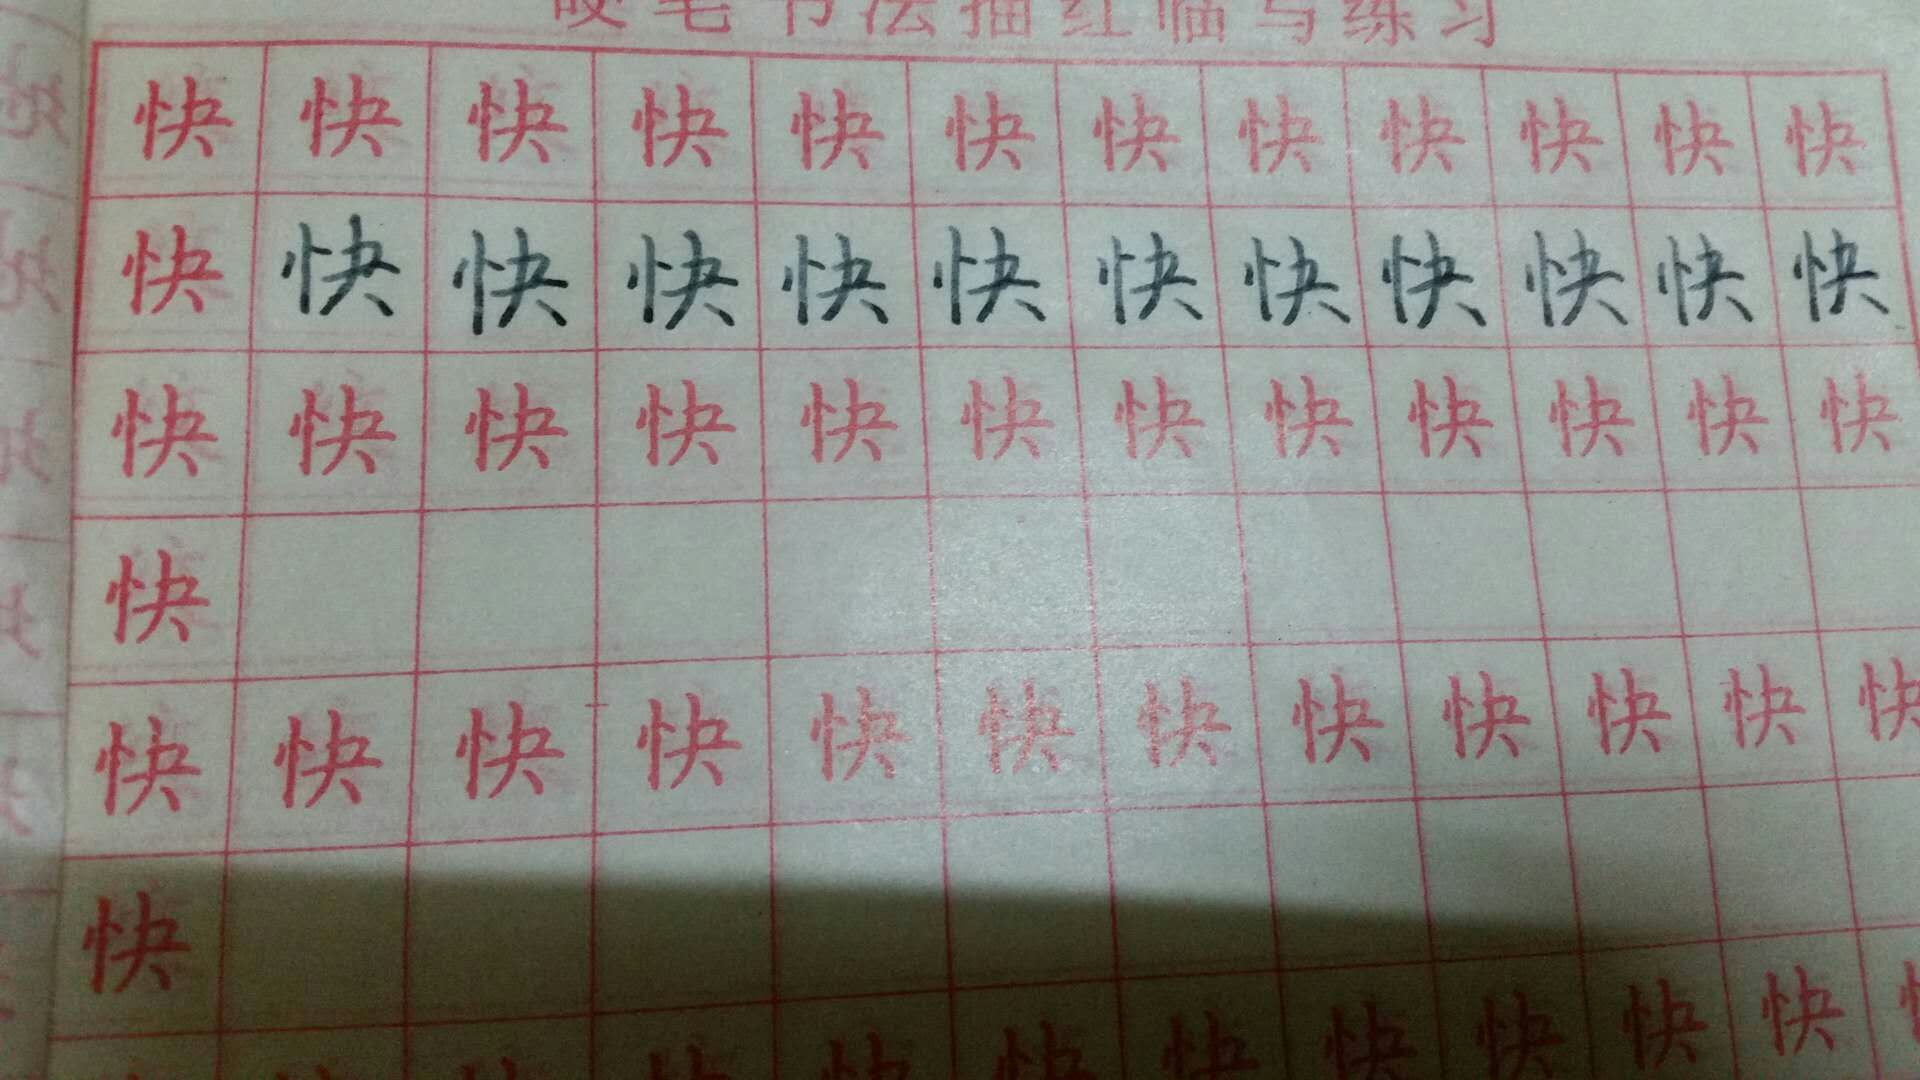 硬笔书法描红临写练习
快快快快快快快快快快快快
快快快快快快快快快快快快
快快快快快快快快快快快快
快
快快快快快快快快快快快快
快
快快快快快快快快快快快快